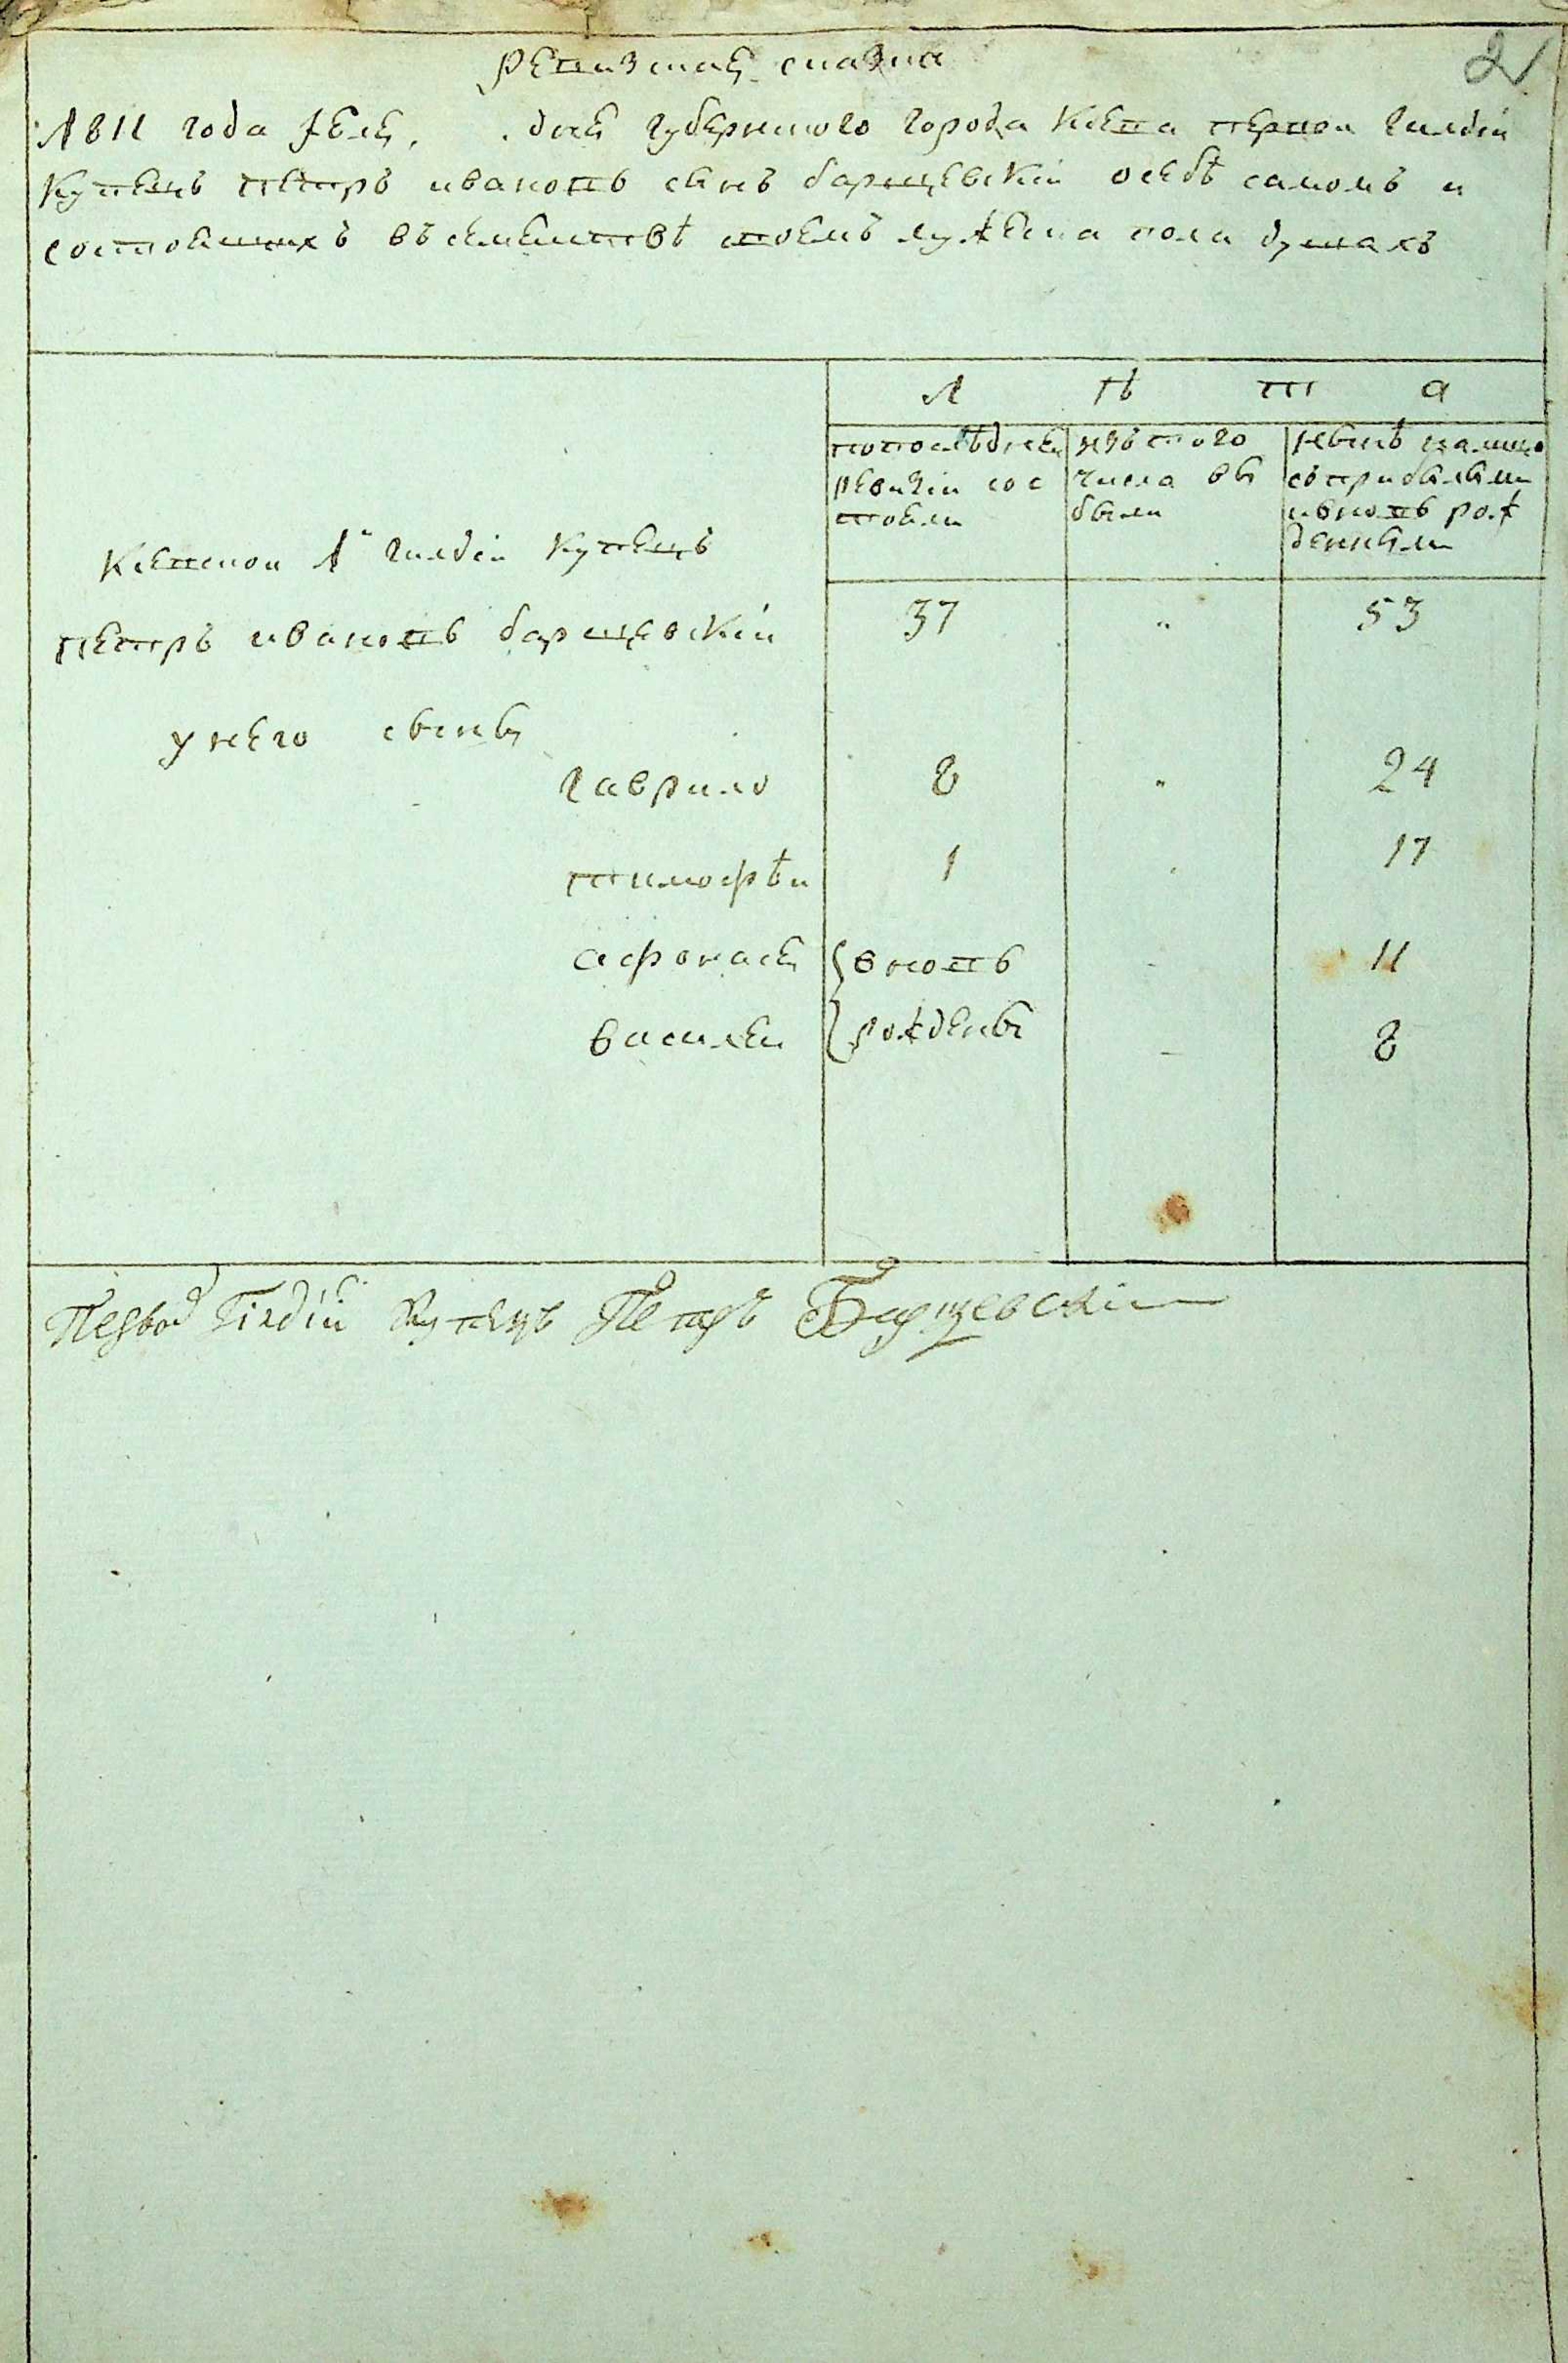 2
Ревизская сказка
1811 года Июля, дня губернского города Киева первой гилдіи
купецъ петръ ивановъ сынъ барщевскій осебѣ самомъ и
состоящихъ въсемействѣ моемъ мужеска пола душахъ
Л Ѣ Т А
попослѣдней ревизіи сос тояли
изътого числа вы были
Нынѣ налицо съприбылыми ивновь рож денными
Кіевской 1й гилдіи купецъ
петръ ивановъ барщевскій 37 " 53
у него сыны
гаврило 8 " 24
тимофѣй 1 " 17
афонасей вновь - 11
василей рождены - 8
Первой Гілдіи Купецъ Петръ Барщевскій